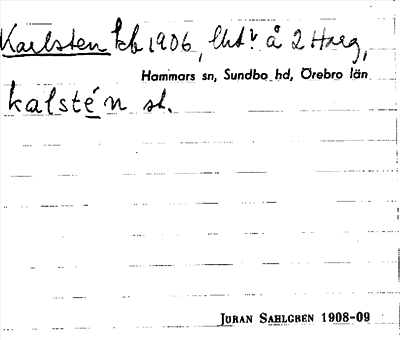 Karlsten kb 1906, lhtr å 2 Harg,
Hammars sn, Sundbo hd, Örebro län
kalstén st.
JURAN SAHLGREN 1908-09